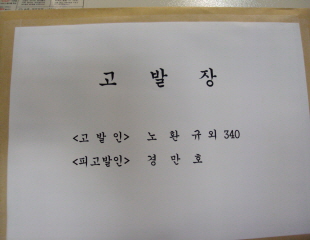 고 발 장
<고 발 인> 노 환 규 외 340
<피고발인> 경 만 호